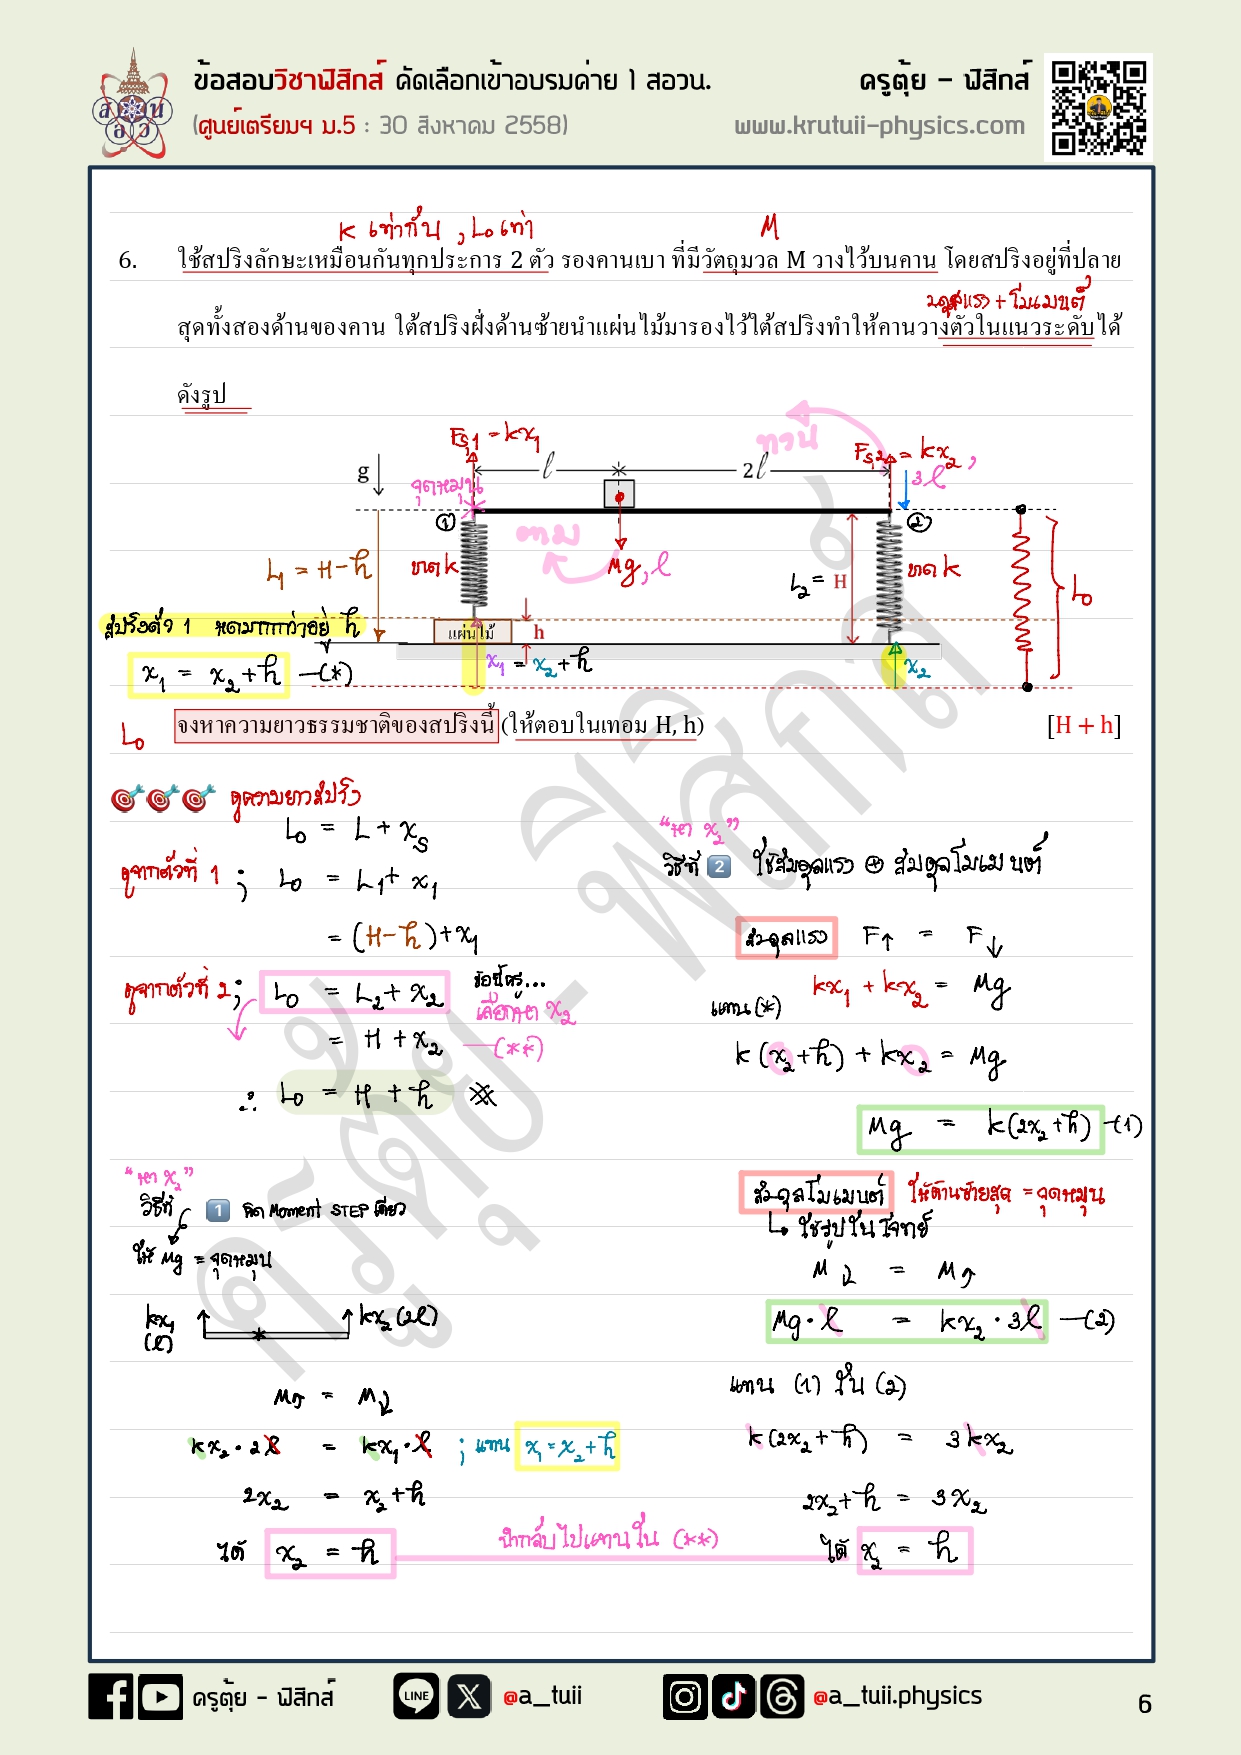 ข้อสอบวิชาฟิสิกส์ คัดเลือกเข้าอบรมค่าย 1 สอวน.
ครูตุ้ย – ฟิสิกส์
(ศูนย์เตรียมฯ ม.5 : 30 สิงหาคม 2558)
www.krutuii-physics.com
สอวน
K เท่ากัน , L₀ เท่า
M
6. ใช้สปริงลักษะเหมือนกันทุกประการ 2 ตัว รองคานเบา ที่มีวัตถุมวล M วางไว้บนคาน โดยสปริงอยู่ที่ปลาย
สมดุลแรง + โมเมนต์
สุดทั้งสองด้านของคาน ใต้สปริงฝั่งด้านซ้ายนำแผ่นไม้มารองไว้ใต้สปริงทำให้คานวางตัวในแนวระดับได้
ดังรูป
Fs,1 = kx₁
ทวน
Fs,2 = kx₂,
3ℓ
g
ℓ
2ℓ
จุดหมุน
①
②
ตาม
L₁ = H-h
หด k
Mg, ℓ
L₂ = H
หด k
L₀
สปริงตัว 1 หดมากกว่าอยู่ h
แผ่นไม้
h
x₁ = x₂+h
x₂
x₁ = x₂+h —(*)
L₀
จงหาความยาวธรรมชาติของสปริงนี้ (ให้ตอบในเทอม H, h)
[H + h]
ดูความยาวสปริง
L₀ = L + xₛ
ดูจากตัวที่ 1 ; L₀ = L₁ + x₁
= (H-h) + x₁
ดูจากตัวที่ 2 ; L₀ = L₂ + x₂
ข้อนี้ครู...
เลือกหา x₂
= H + x₂ —(**)
∴ L₀ = H + h
"หา x₂"
วิธีที่ 1 คิด Moment STEP เดียว
ให้ Mg = จุดหมุน
kx₁
(ℓ)
kx₂(2ℓ)
M = M
kx₂·2ℓ = kx₁·ℓ ; แทน x₁ = x₂+h
2x₂ = x₂+h
ได้ x₂ = h
นำกลับไปแทนใน (**)
"หา x₂"
วิธีที่ 2 ใช้สมดุลแรง ⊕ สมดุลโมเมนต์
สมดุลแรง F↑ = F↓
kx₁ + kx₂ = Mg
แทน (*)
k(x₂+h) + kx₂ = Mg
Mg = k(2x₂+h) —(1)
สมดุลโมเมนต์ ให้ด้านซ้ายสุด = จุดหมุน
↳ ใช้รูปในโจทย์
M = M
Mg·ℓ = kx₂·3ℓ —(2)
แทน (1) ใน (2)
k(2x₂+h) = 3kx₂
2x₂+h = 3x₂
ได้ x₂ = h
ครูตุ้ย - ฟิสิกส์
ครูตุ้ย – ฟิสิกส์
LINE
@a_tuii
@a_tuii.physics
6